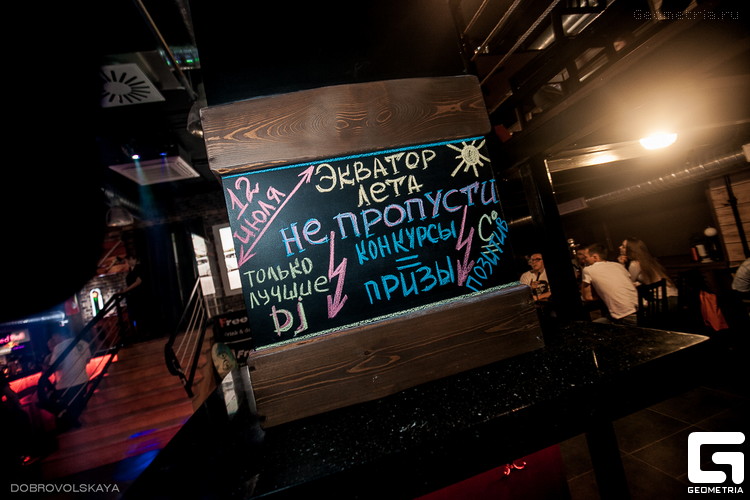 Geometria.ru
12
ИЮЛЯ
ЭКВАТОР
ЛЕТА
НЕ ПРОПУСТИ
ТОЛЬКО
ЛУЧШИЕ
Dj
КОНКУРСЫ
=
ПРИЗЫ
Free
DOBROVOLSKAYA
GEOMETRIA